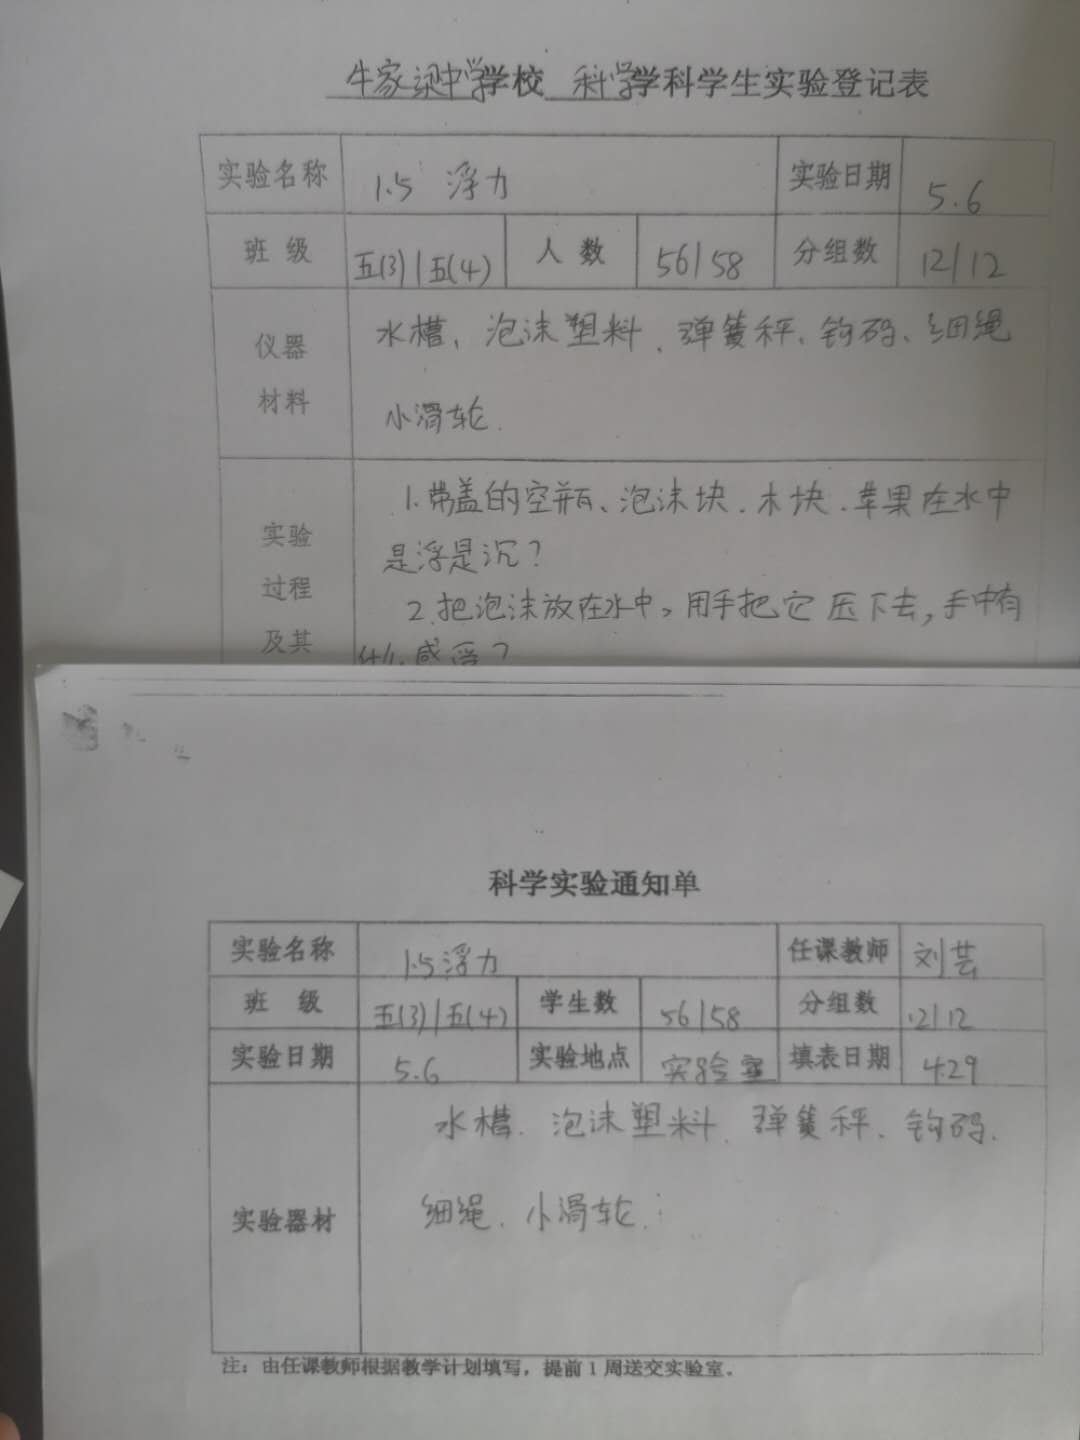 牛家梁中学学校 科学学科学生实验登记表
实验名称 1.5 浮力 实验日期 5.6
班 级 五(3)/五(4) 人 数 56/58 分组数 12/12
仪器
材料
水槽、泡沫塑料、弹簧秤、钩码、细绳
小滑轮.
实验
过程
及其
1.带盖的空瓶、泡沫块、木块、苹果在水中
是浮是沉?
2.把泡沫放在水中,用手把它压下去,手中有
什么感受?
科学实验通知单
实验名称 1.5浮力 任课教师 刘芸
班 级 五(3)/五(4) 学生数 56/58 分组数 12/12
实验日期 5.6 实验地点 实验室 填表日期 4.29
实验器材
水槽、泡沫塑料、弹簧秤、钩码、
细绳、小滑轮.
注：由任课教师根据教学计划填写，提前1周送交实验室。